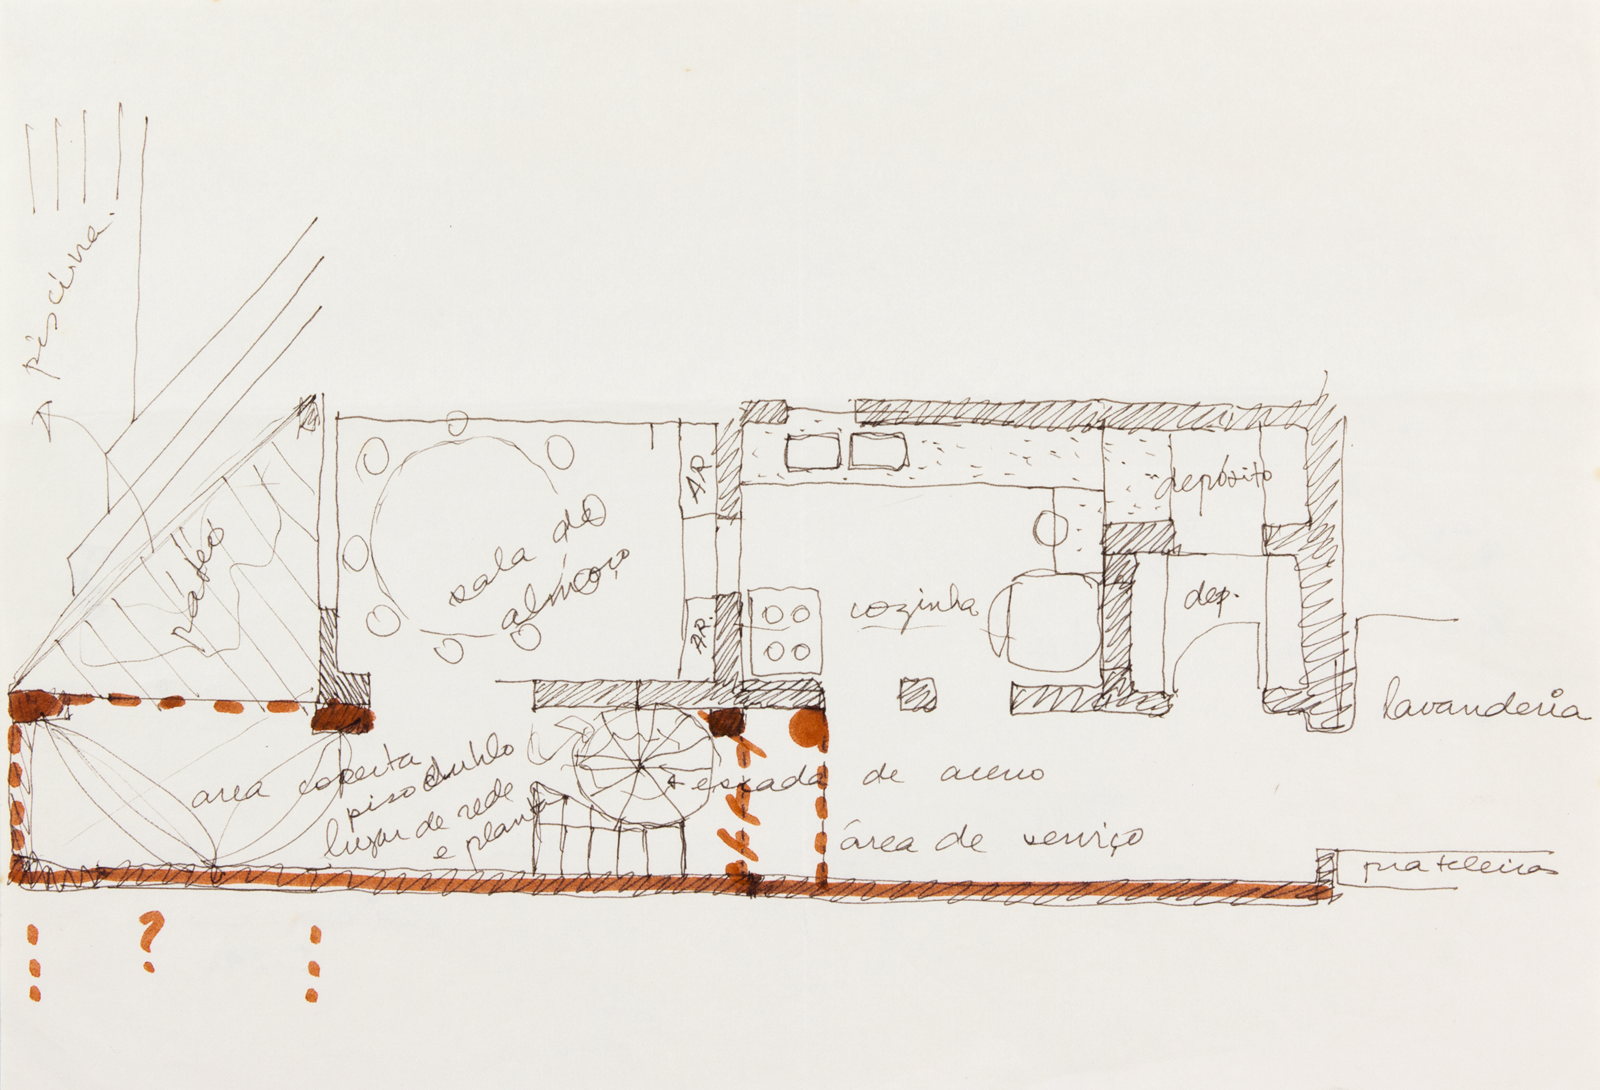 piscina
pátéo
sala de
almoço
AR.
AR.
cozinha
depósito
dep.
lavanderia
area coberta
piso
lugar de rede
e planta
escada de aceno
área de serviço
prateleiras
?